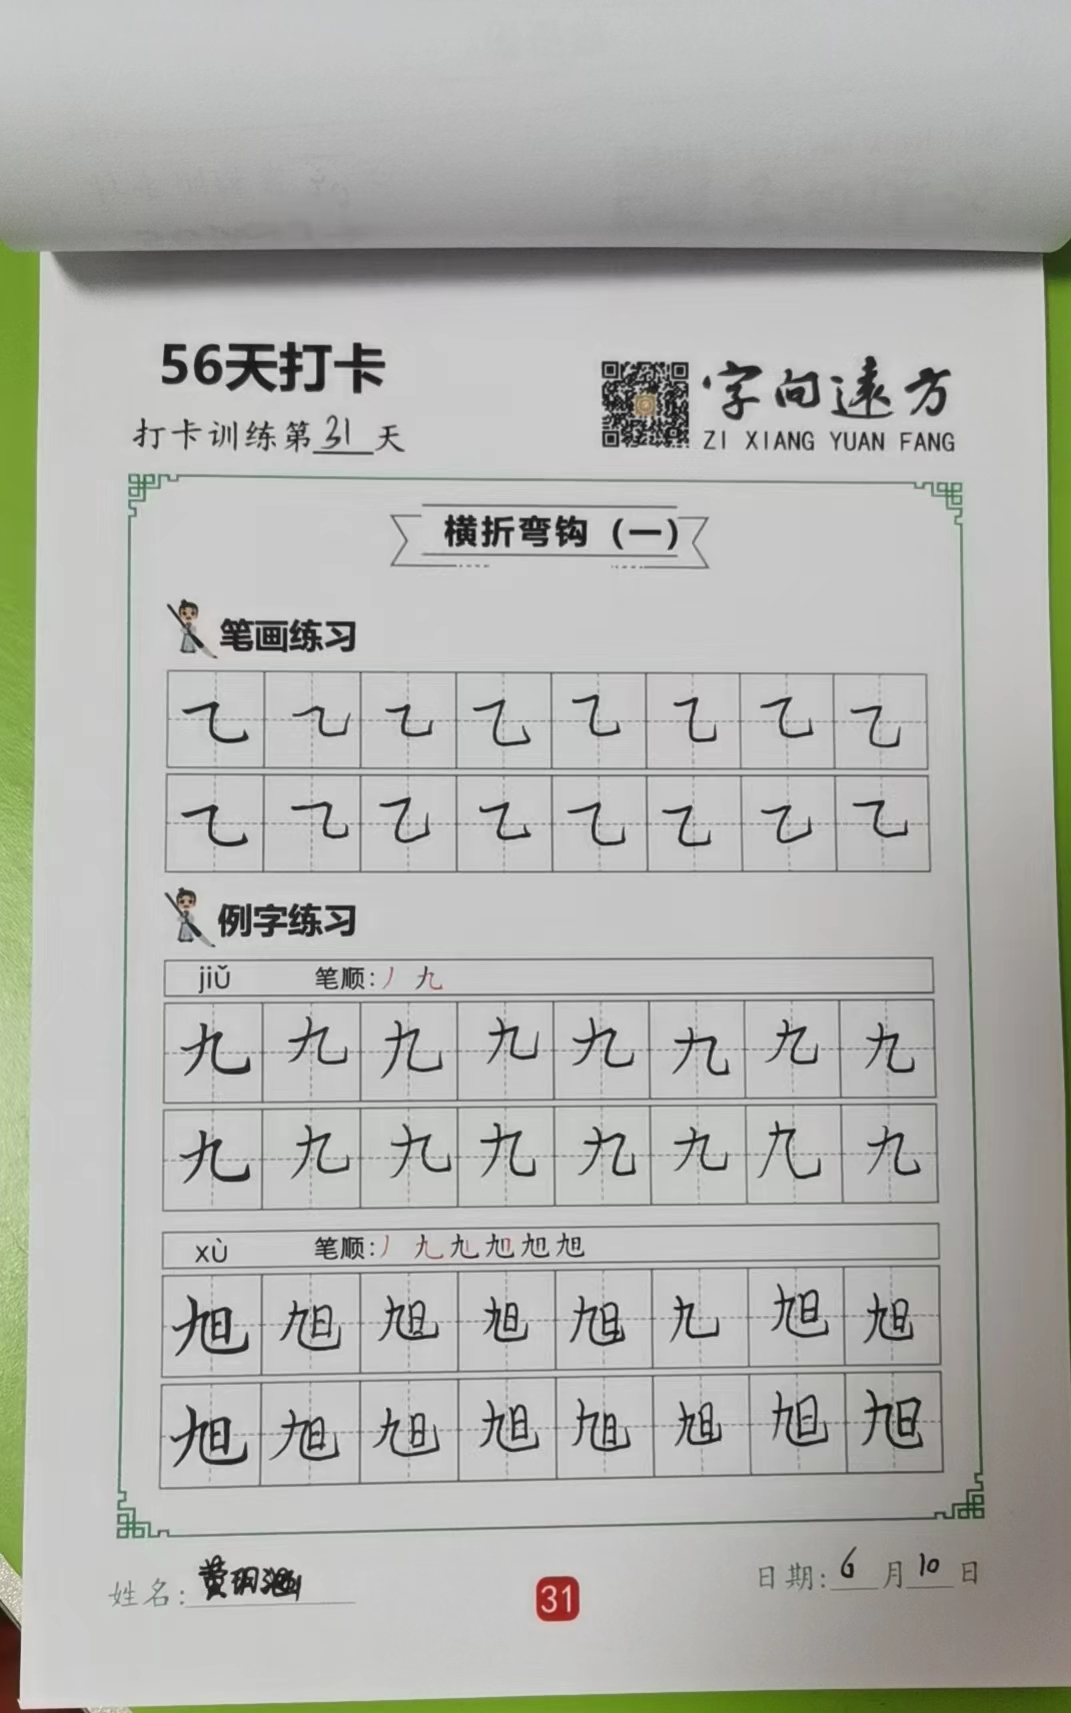 56天打卡
打卡训练第31天
字向遠方
ZI XIANG YUAN FANG
横折弯钩（一）
笔画练习
乙 乙 乙 乙 乙 乙 乙 乙
乙 乙 乙 乙 乙 乙 乙 乙
例字练习
jiǔ 笔顺:丿 九
九 九 九 九 九 九 九 九
九 九 九 九 九 九 九 九
xù 笔顺:丿 九 旭 旭 旭 旭
旭 旭 旭 旭 旭 九 旭 旭
旭 旭 旭 旭 旭 旭 旭 旭
姓名:黄玥涵
31
日期:6月10日